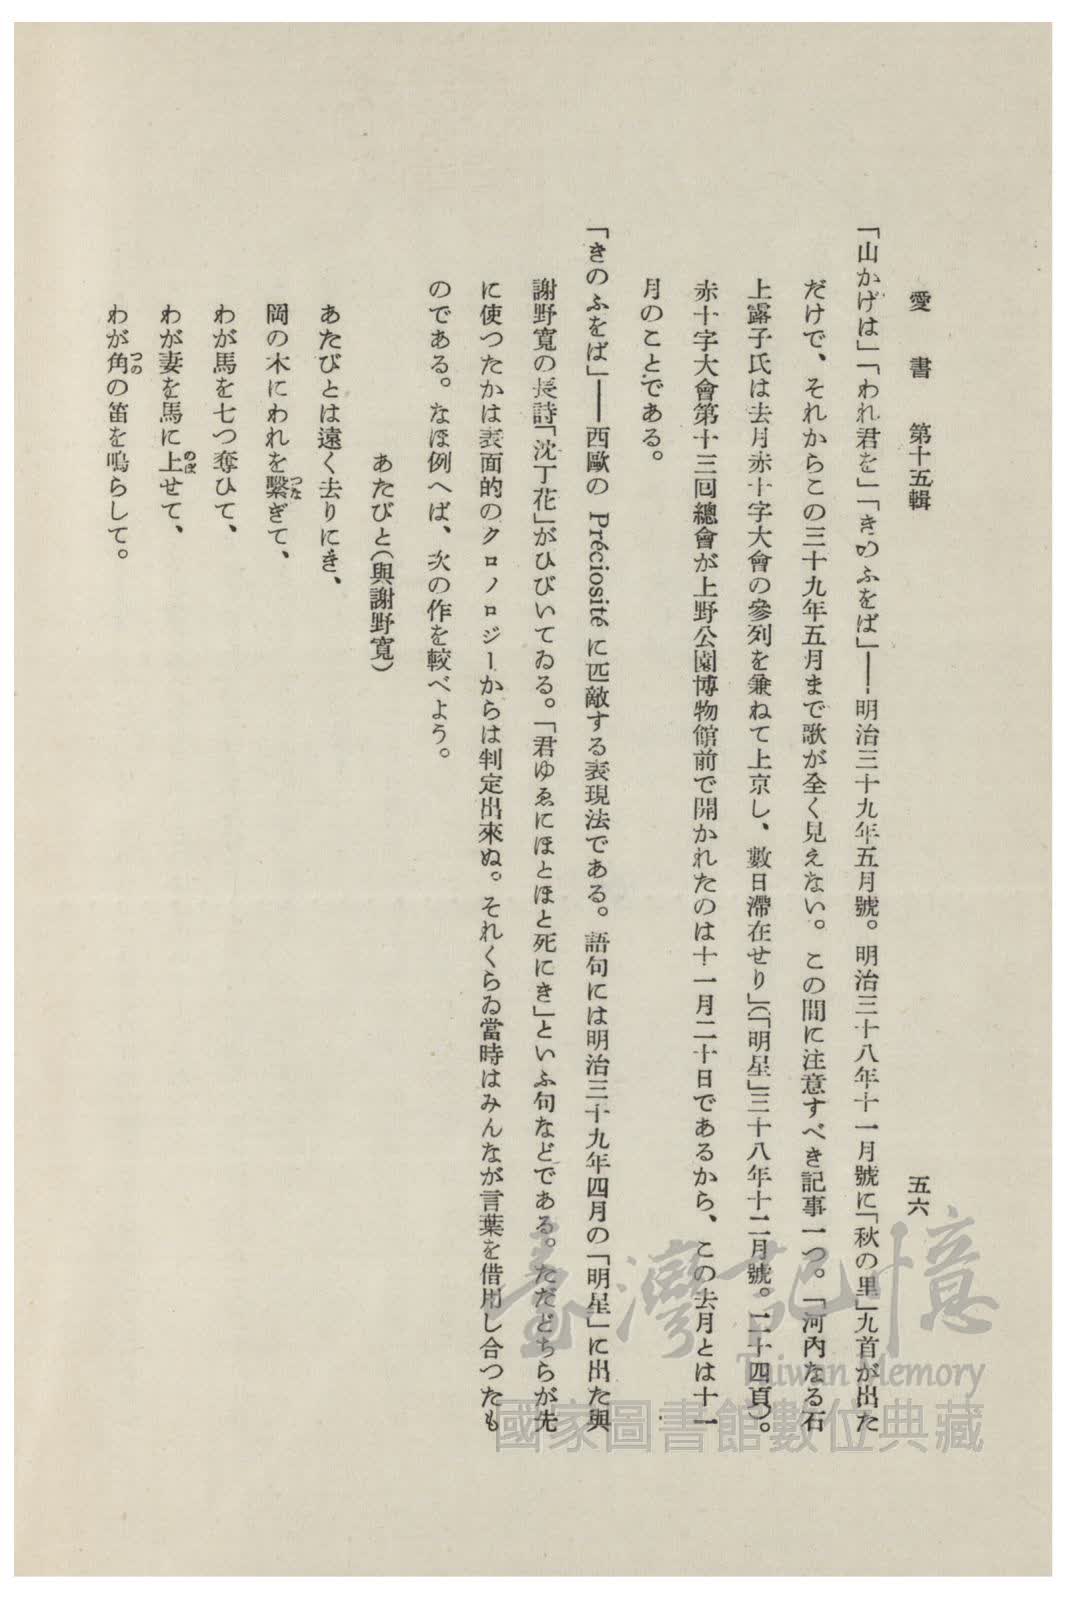 愛書 第十五輯
五六
「山かげは」「われ君を」「きのふをば」——明治三十九年五月號。明治三十八年十一月號に「秋の里」九首が出た
だけで、それからこの三十九年五月まで歌が全く見えない。この間に注意すべき記事一つ。「河內なる石
上露子氏は去月赤十字大會の參列を兼ねて上京し、數日滯在せり」(「明星」三十八年十二月號。二十四頁)。
赤十字大會第十三囘總會が上野公園博物館前で開かれたのは十一月二十日であるから、この去月とは十一
月のことである。
「きのふをば」——西歐の Préciosité に匹敵する表現法である。語句には明治三十九年四月の「明星」に出た與
謝野寬の長詩「沈丁花」がひびいてゐる。「君ゆゑにほとほと死にき」といふ句などである。ただどちらが先
に使つたかは表面的のクロノロジーからは判定出來ぬ。それくらゐ當時はみんなが言葉を借用し合つたも
のである。なほ例へば、次の作を較べよう。
あたびと(與謝野寬)
あたびとは遠く去りにき、
岡の木にわれを繫つなぎて、
わが馬を七つ奪ひて、
わが妻を馬に上のぼせて、
わが角つのの笛を鳴らして。
臺灣記憶
Taiwan Memory
國家圖書館數位典藏